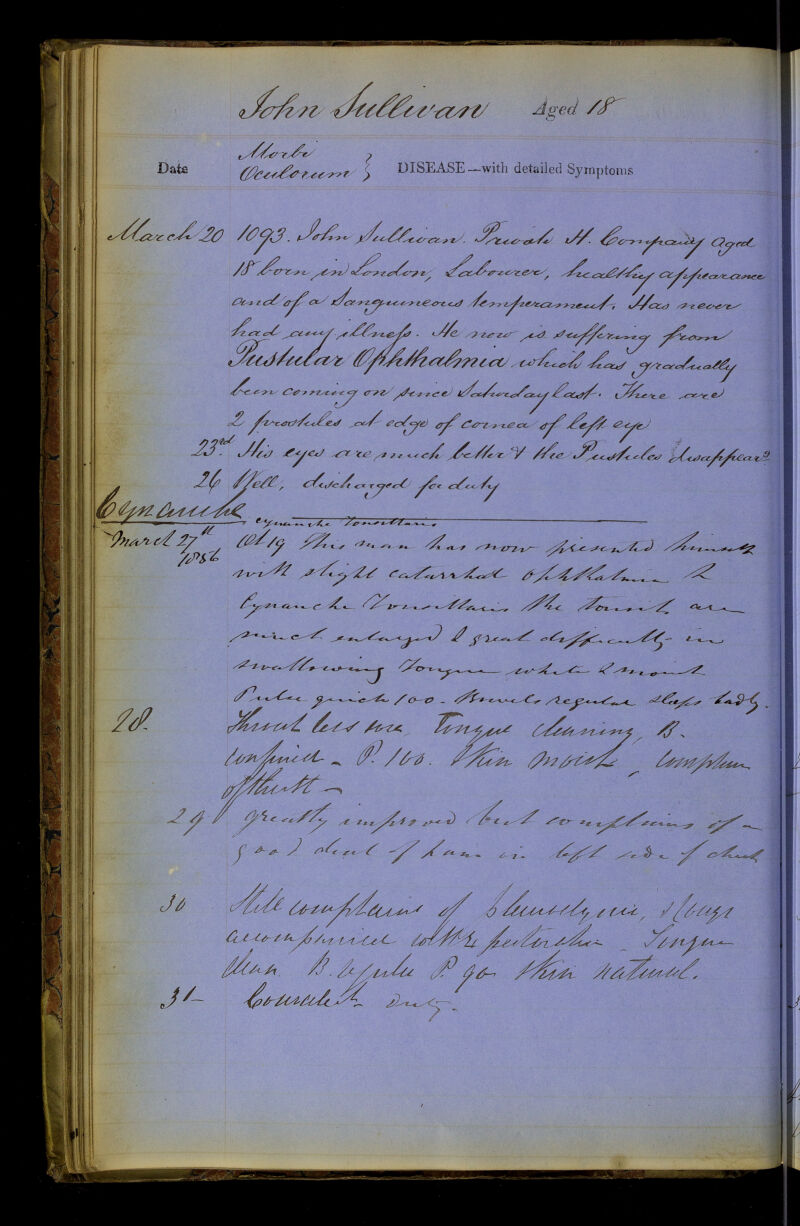 John Sullivan Aged 18
Date Morbi Oculorum } DISEASE—with detailed Symptoms
March 20 1093. John Sullivan. Private H. Company aged
18 born in London, Labourer, healthy appearance
and of a Sanguineous temperament. Has never
had any illness. He now is suffering from
Pustular Ophthalmia which has gradually
been coming on since Saturday last. There are
2 pustules at edge of cornea of left eye
23rd. His eyes are much better & the Pustules disappeard
26 Well, discharged for duty
Cynanche
cynanche Tonsillaris
March 27th 1856 Æt 19 This man has now presented himself
with slight catarrhal ophthalmia &
Cynanche Tonsillaris The tonsils are
much enlarged & great difficulty in
swallowing Tongue white & moist
Pulse quick 100 - Bowels regular sleeps badly.
28. Throat less sore, Tongue cleaning, B.
confined - P. 100. Skin moist,
29 greatly improved but complains of a
good deal of pain in left side of chest
30 Still complains of pleurodynia,
accompanied Tongue
clean B. regular P. 90 Skin natural.
31 - duty.